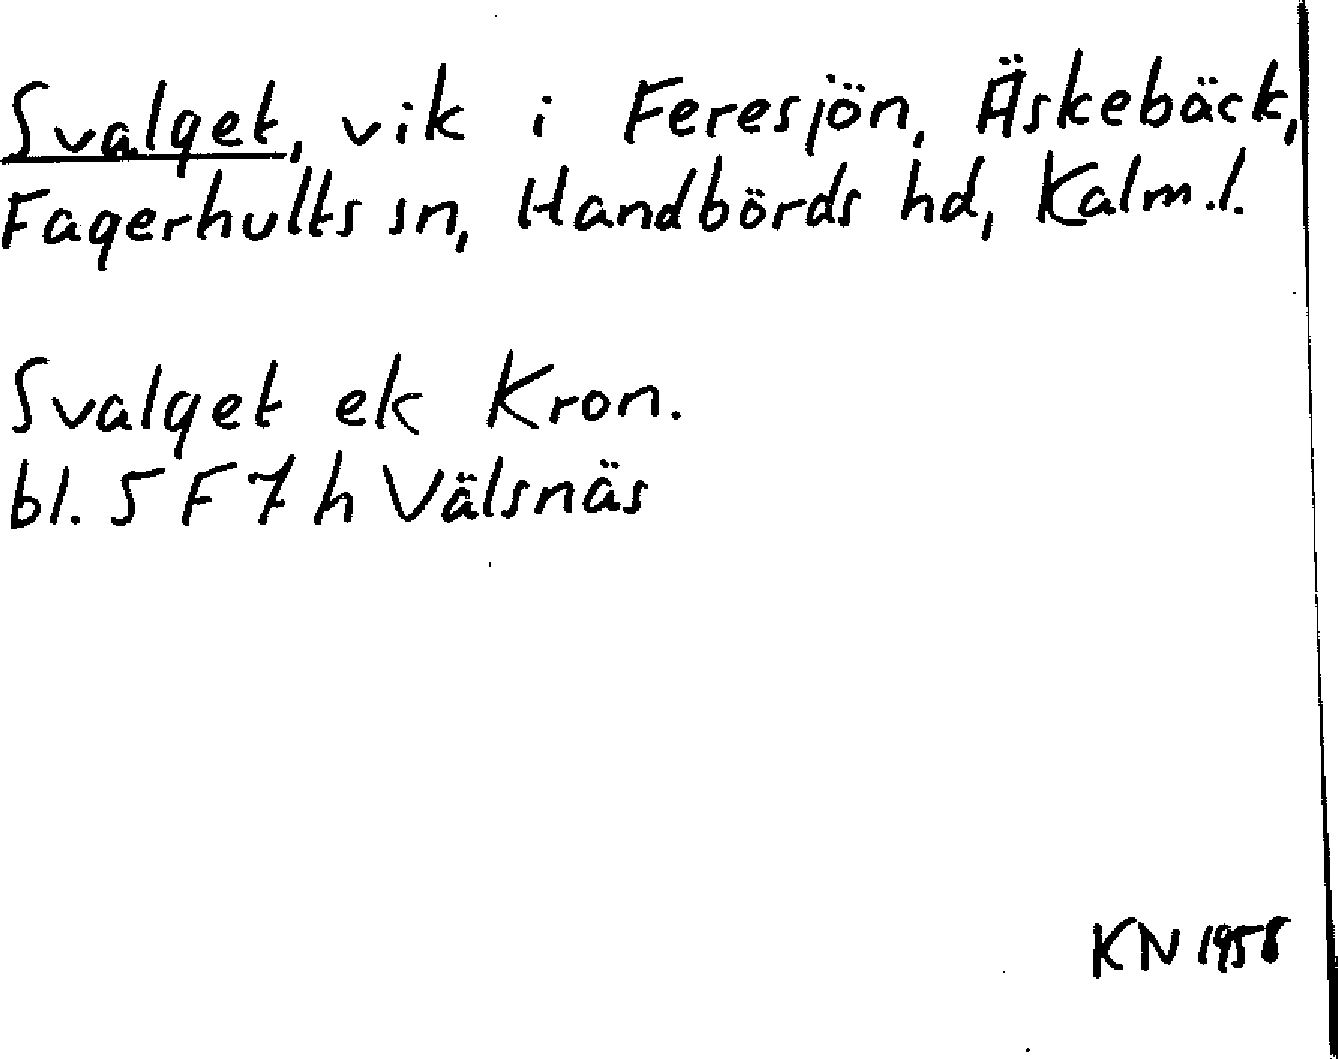 Svalget, vik i Feresjön, Äskebäck,
Fagerhults sn, Handbörds hd, Kalm.l.
Svalget ek Kron.
bl. 5 F 7 h Välsnäs
KN 1958